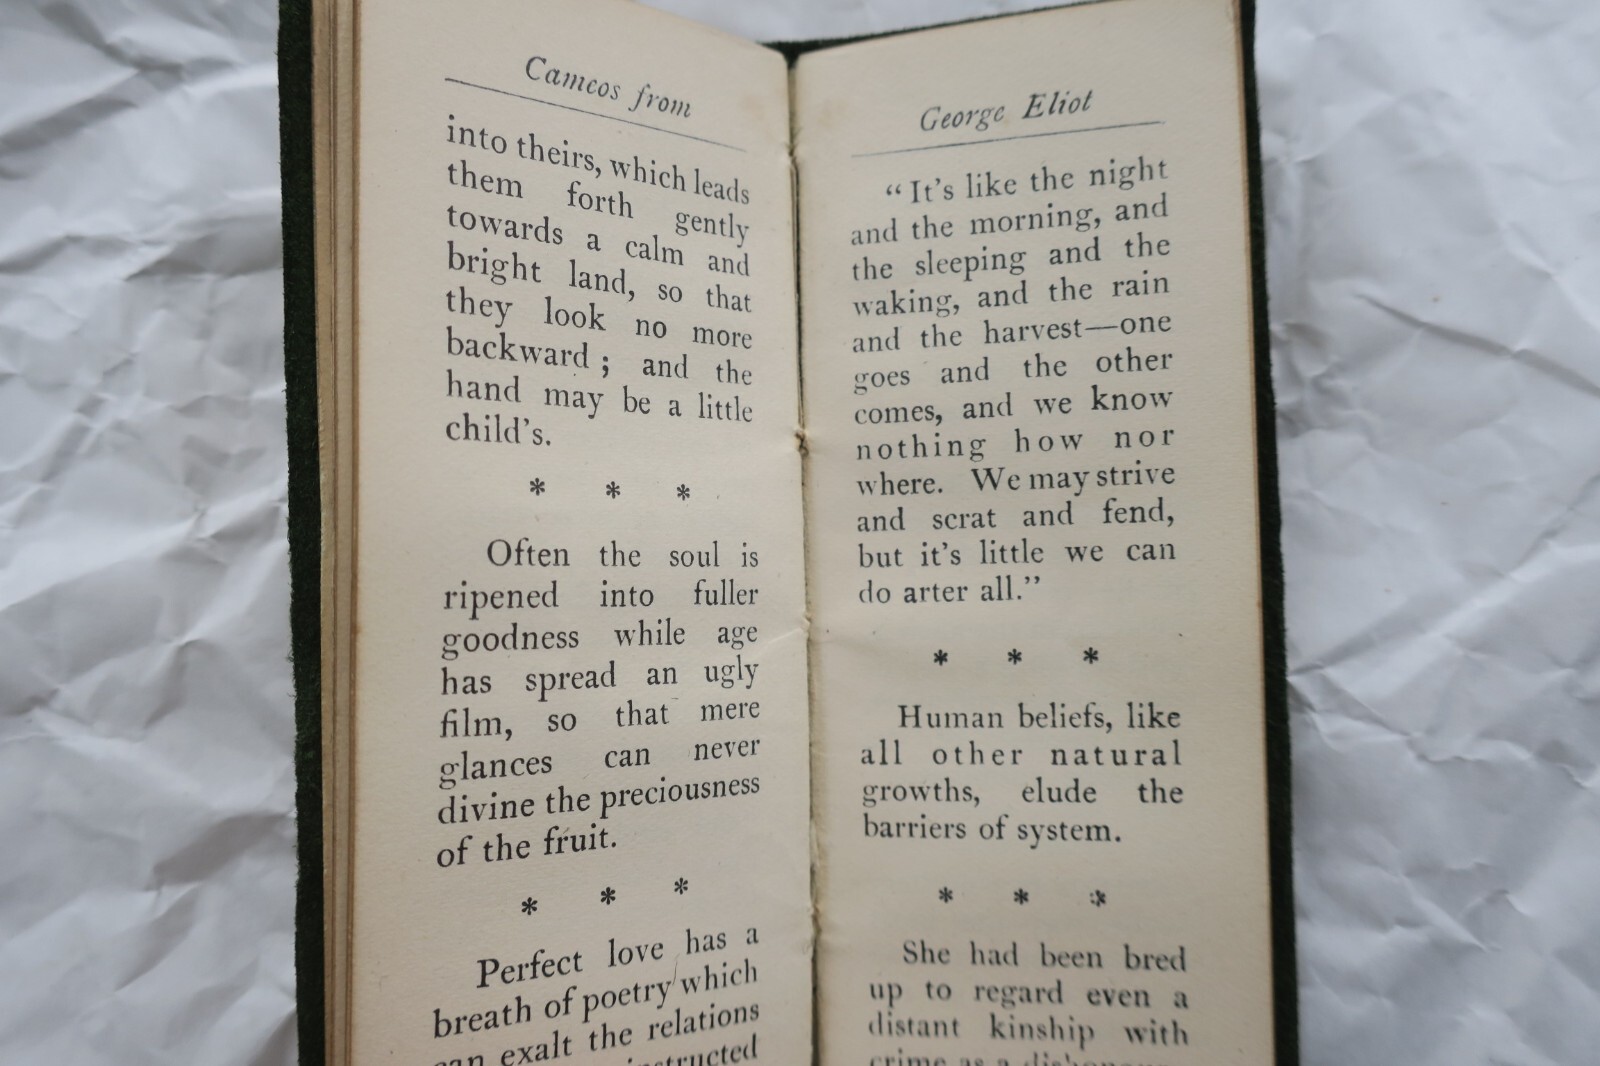 Cameos from
into theirs, which leads
them forth gently
towards a calm and
bright land, so that
they look no more
backward ; and the
hand may be a little
child's.
* * *
Often the soul is
ripened into fuller
goodness while age
has spread an ugly
film, so that mere
glances can never
divine the preciousness
of the fruit.
* * *
Perfect love has a
breath of poetry which
can exalt the relations
George Eliot
“It's like the night
and the morning, and
the sleeping and the
waking, and the rain
and the harvest—one
goes and the other
comes, and we know
nothing how nor
where. We may strive
and scrat and fend,
but it's little we can
do arter all.”
* * *
Human beliefs, like
all other natural
growths, elude the
barriers of system.
* * *
She had been bred
up to regard even a
distant kinship with
crime as a